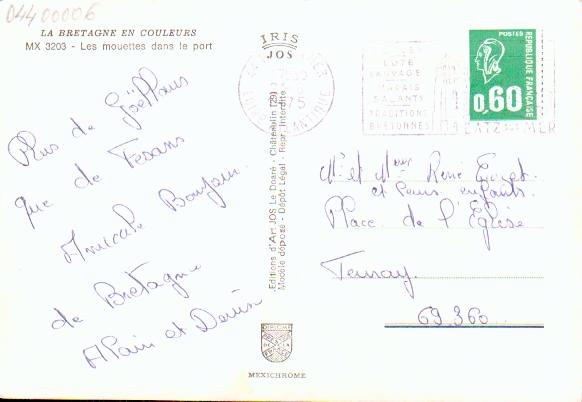 04400006
LA BRETAGNE EN COULEURS
MX 3203 - Les mouettes dans le port
IRIS
JOS
Plus de Goëllans
que de Fesans
Amicale Bonjour
de Bretagne
Alain et Denise
Editions d'Art JOS Le Doaré - Châteaulin (29)
Modèle déposé - Dépôt Légal - Repr. Interdite
COTE
SAUVAGE
MARAIS
SALANTS
TRADITIONS
BRETONNES
BATZ S/MER
POSTES
REPUBLIQUE FRANÇAISE
0,60
Mr et Mme René
et leurs enfants
Place de l'Église
Ternay
69.360
MEXICHROME